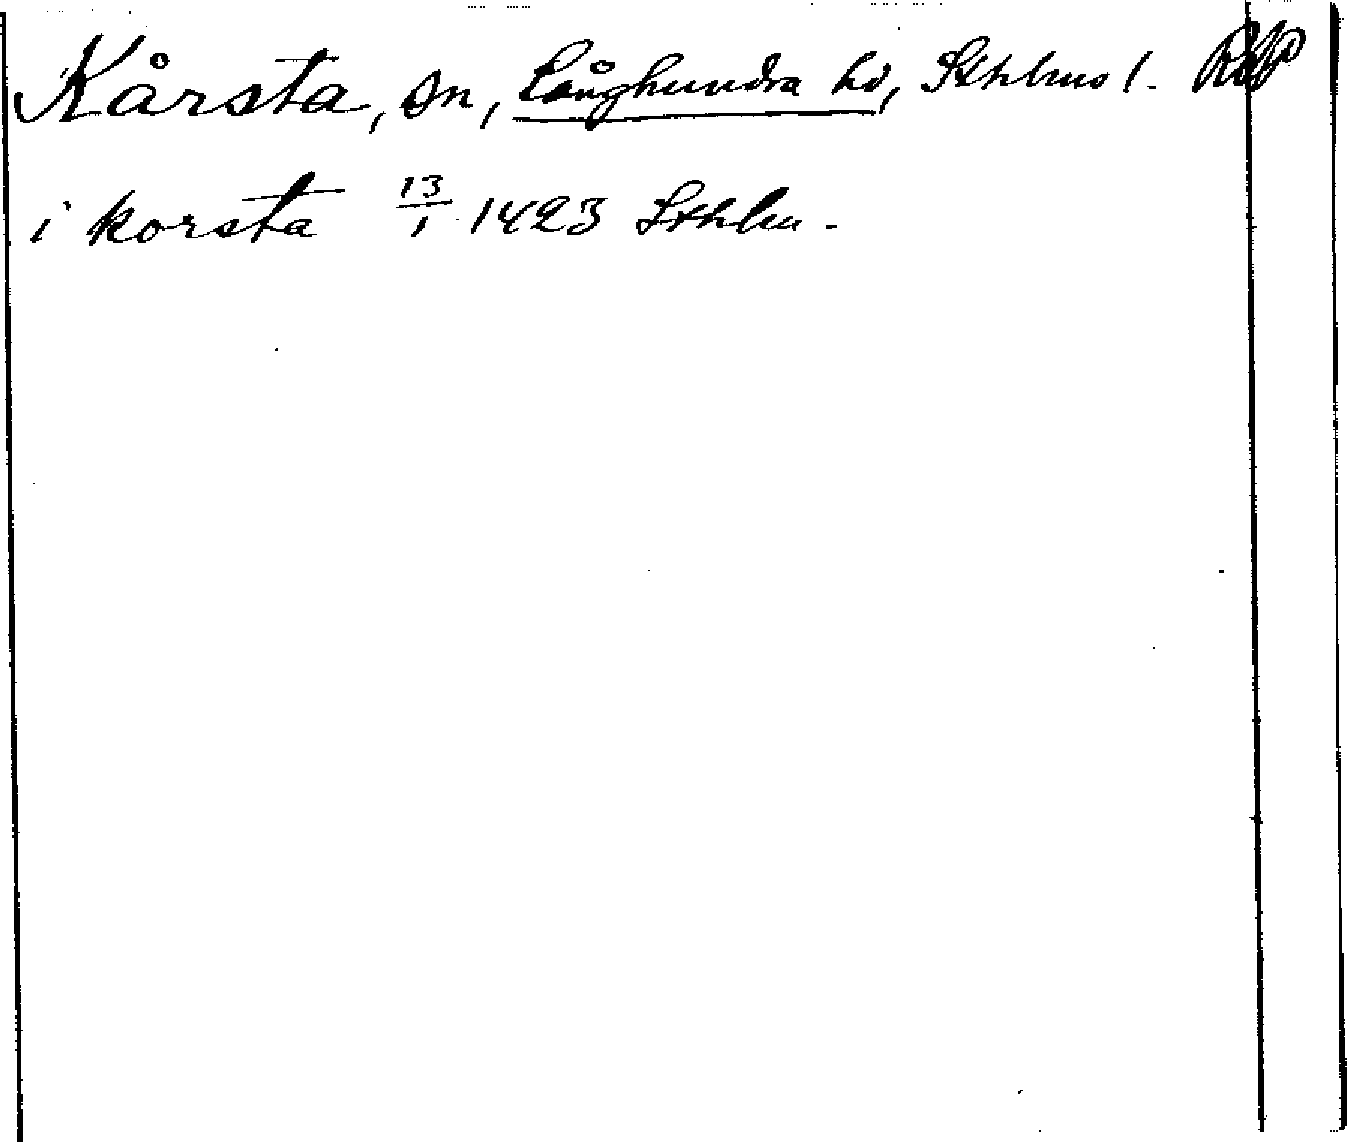 Kårsta, sn, Långhundra hd, Sthlms l. RAP
i korsta 13/1 1423 Sthlm.